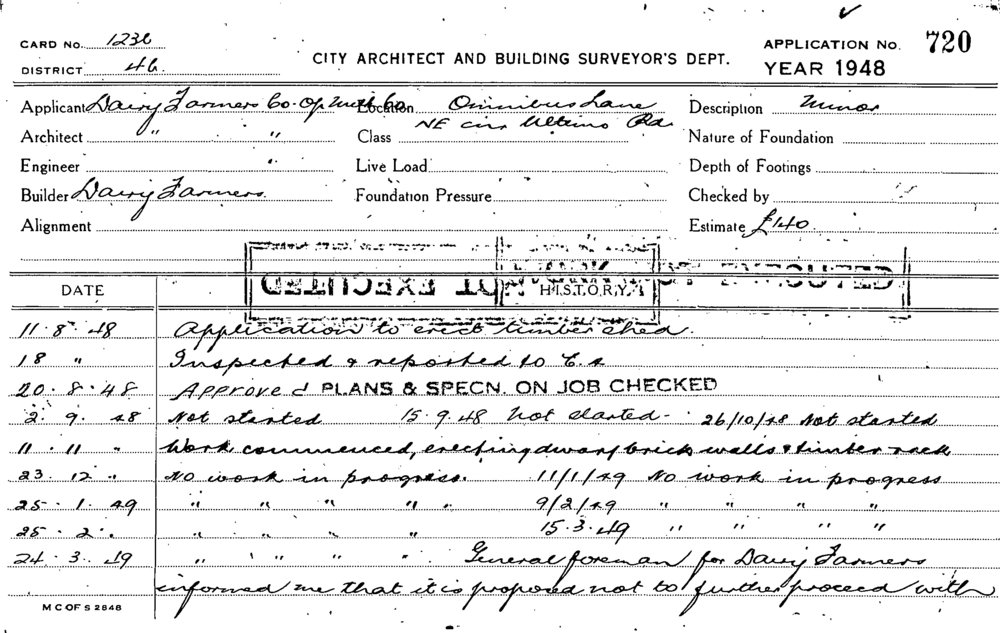 CARD No. 1236
DISTRICT 46
CITY ARCHITECT AND BUILDING SURVEYOR'S DEPT.
APPLICATION No. 720
YEAR 1948
Applicant Dairy Farmers Co. Op Milk Co Location Omnibus Lane Description Minor
Architect " " Class NE cnr Ultimo Rd. Nature of Foundation
Engineer " Live Load Depth of Footings
Builder Dairy Farmers. Foundation Pressure Checked by
Alignment Estimate £140
NOT EXECUTED
DATE HISTORY
11.8.48 Application to erect timber shed.
18 " Inspected & reported to C.A
20.8.48 Approved PLANS & SPECN. ON JOB CHECKED
2.9.48 Not started 15.9.48 Not started - 26/10/48 Not started
11.11 " Work commenced, erecting dwarf brick walls & timber rack
23.12 " No work in progress. 11/1/49 No work in progress
25.1.49 " " " " 9/2/49 " " " "
25.2. " " " " " 15.3.49 " " " "
24.3.49 " " " " " General foreman for Dairy Farmers
informed me that it is proposed not to further proceed with
M C OF S 2848